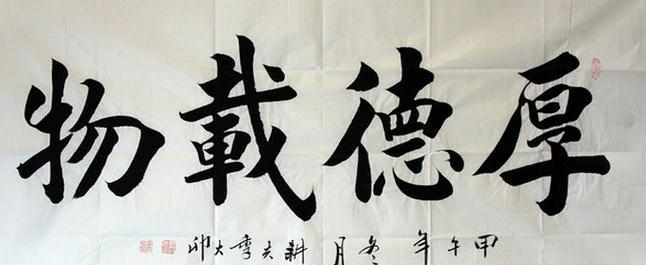 厚德載物
甲午年冬月耕夫李大卯